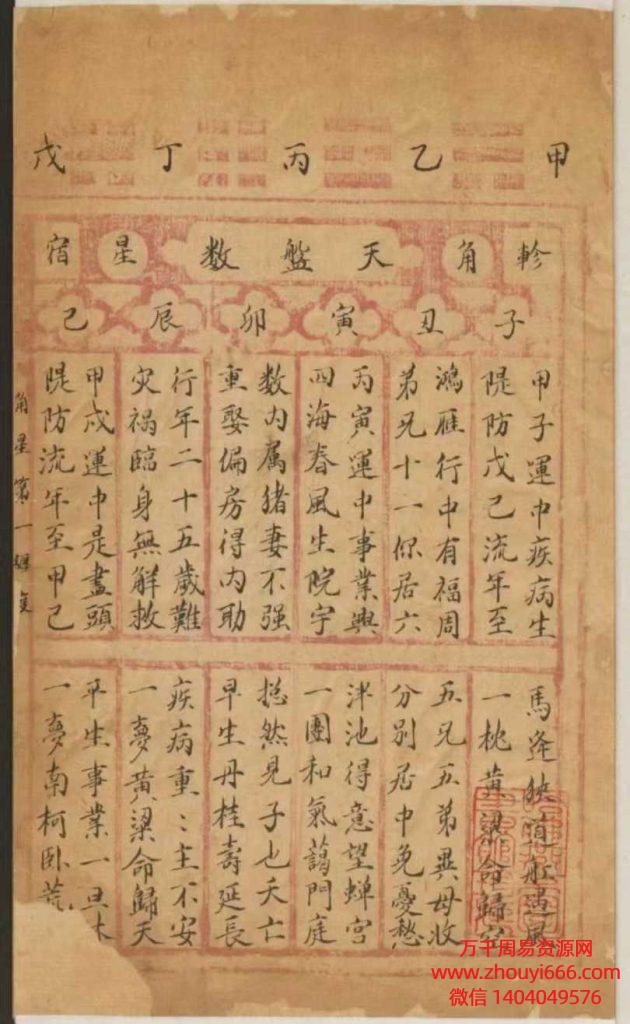 甲乙丙丁戊
軫角天盤数星宿
子丑寅卯辰巳
甲子運中疾病生
隄防戊己流年至
鴻雁行中有福周
弟兄十一你居六
丙寅運中事業興
四海春風生院宇
数内属猪妻不强
重娶偏房得内助
行年二十五歲難
灾禍臨身無解救
甲戌運中是盡頭
隄防流年至甲己
角星第一
馬逢狹道舡遇風
一枕黄梁命歸
五兄五弟異母收
分别居中免憂愁
泮池得意望蟬宫
一團和氣藹門庭
縂然見子也夭亡
早生丹桂壽延長
疾病重〻主不安
一夢黄梁命歸天
平生事業一旦休
一夢南柯卧荒
万千周易资源网
www.zhouyi666.com
微信 1404049576